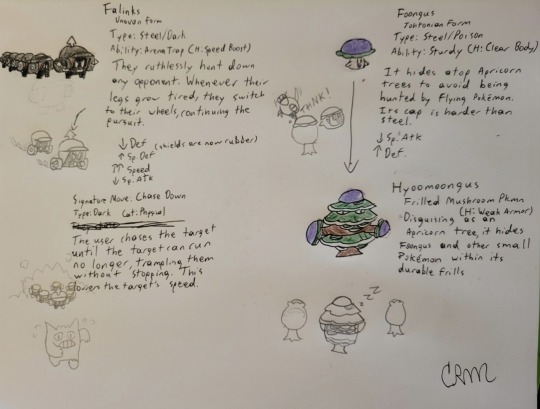 Falinks
Unovan Form
Type: Steel/Dark
Ability: Arena Trap (H: Speed Boost)
They ruthlessly hunt down
any opponent. Whenever their
legs grow tired, they switch
to their wheels, continuing the
pursuit.
↓ Def (shields are now rubber)
↑ Sp. Def
↑↑ Speed
↓ Sp. Atk
Signature Move: Chase Down
Type: Dark Cat: Physical
The user chases the target
until the target can run
no longer, trampling them
without stopping. This
lowers the target's speed.
Foongus
Johtonian Form
Type: Steel/Poison
Ability: Sturdy (H: Clear Body)
It hides atop Apricorn
trees to avoid being
hunted by Flying Pokémon.
Its cap is harder than
steel.
TONK!
↓ Sp. Atk
↑ Def
Hyoomoongus
Frilled Mushroom Pkmn
(H: Weak Armor)
Disguising as an
Apricorn tree, it hides
Foongus and other small
Pokémon within its
durable frills
z z z
CRM